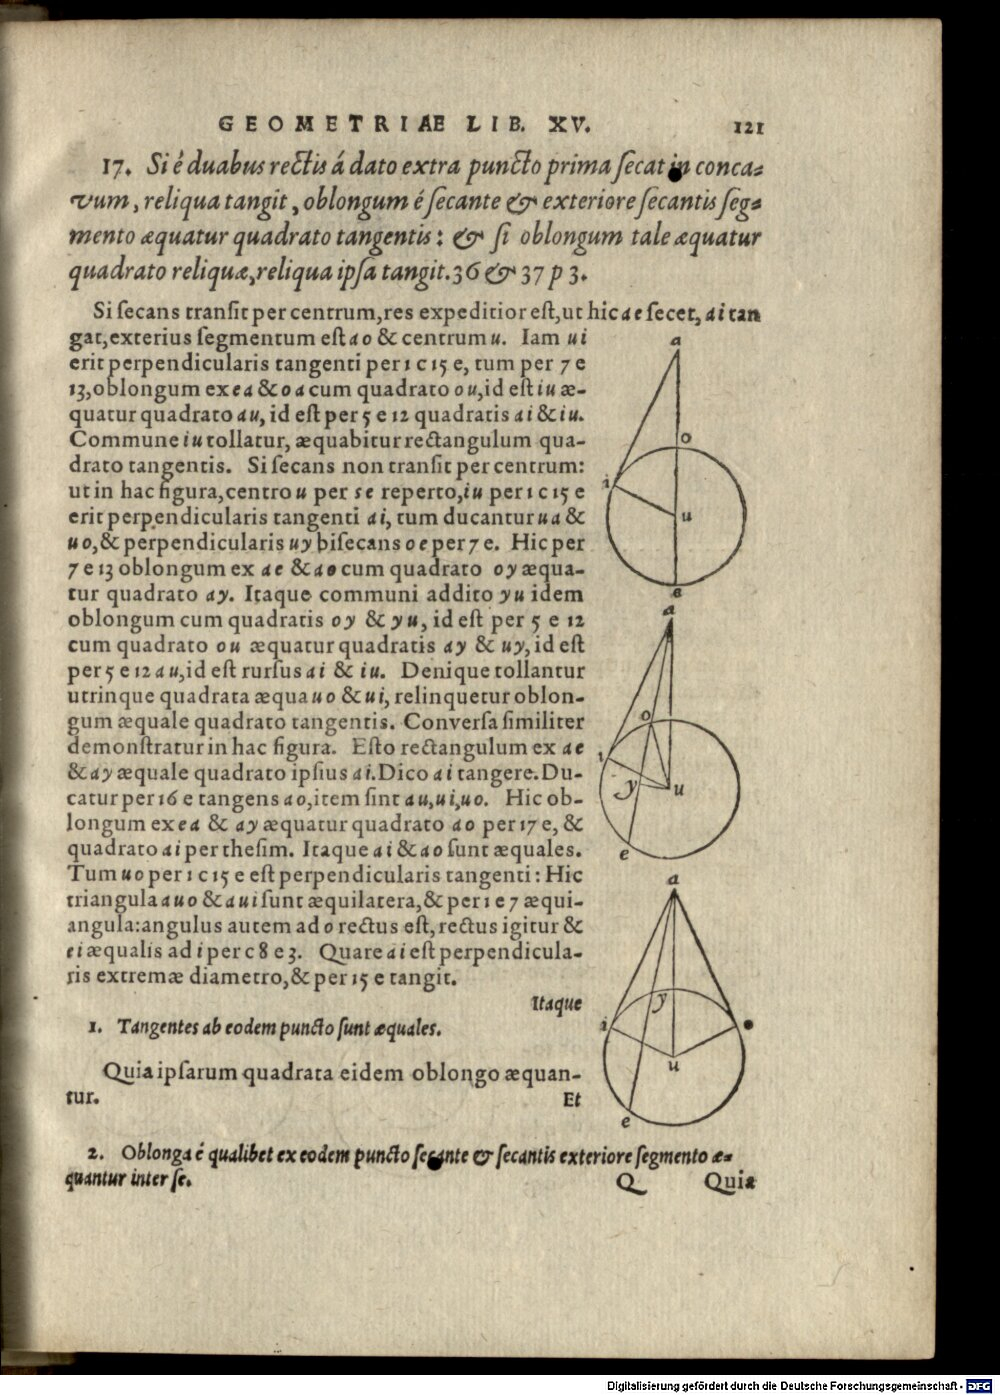 GEOMETRIAE LIB. XV. 121
17. Si é duabus rectis á dato extra puncto prima secat in conca-
vum, reliqua tangit, oblongum é secante & exteriore secantis seg-
mento æquatur quadrato tangentis: & si oblongum tale æquatur
quadrato reliquæ, reliqua ipsa tangit. 36 & 37 p 3.
Si secans transit per centrum, res expeditior est, ut hic ae secet, ai tan
gat, exterius segmentum est ao & centrum u. Iam ui
erit perpendicularis tangenti per 1 c 15 e, tum per 7 e
13, oblongum ex ea & oa cum quadrato ou, id est iu æ-
quatur quadrato au, id est per 5 e 12 quadratis ai & iu.
Commune iu tollatur, æquabitur rectangulum qua-
drato tangentis. Si secans non transit per centrum:
ut in hac figura, centro u per se reperto, iu per 1 c 15 e
erit perpendicularis tangenti ai, tum ducantur ua &
uo, & perpendicularis uy bisecans oe per 7 e. Hic per
7 e 13 oblongum ex ae & ao cum quadrato oy æqua-
tur quadrato ay. Itaque communi addito yu idem
oblongum cum quadratis oy & yu, id est per 5 e 12
cum quadrato ou æquatur quadratis ay & uy, id est
per 5 e 12 au, id est rursus ai & iu. Denique tollantur
utrinque quadrata æqua uo & ui, relinquetur oblon-
gum æquale quadrato tangentis. Conversa similiter
demonstratur in hac figura. Esto rectangulum ex ae
& ay æquale quadrato ipsius ai. Dico ai tangere. Du-
catur per 16 e tangens ao, item sint au, ui, uo. Hic ob-
longum ex ea & ay æquatur quadrato ao per 17 e, &
quadrato ai per thesim. Itaque ai & ao sunt æquales.
Tum uo per 1 c 15 e est perpendicularis tangenti: Hic
triangula auo & aui sunt æquilatera, & per 1 e 7 æqui-
angula: angulus autem ad o rectus est, rectus igitur &
ei æqualis ad i per c 8 e 3. Quare ai est perpendicula-
ris extremæ diametro, & per 15 e tangit.
Itaque
1. Tangentes ab eodem puncto sunt æquales.
Quia ipsarum quadrata eidem oblongo æquan-
tur. Et
2. Oblonga é qualibet ex eodem puncto secante & secantis exteriore segmento æ-
quantur inter se.
Q Quia
a
o
i
u
e
a
o
i
y
u
e
a
y
i
u
e
Digitalisierung gefördert durch die Deutsche Forschungsgemeinschaft - DFG